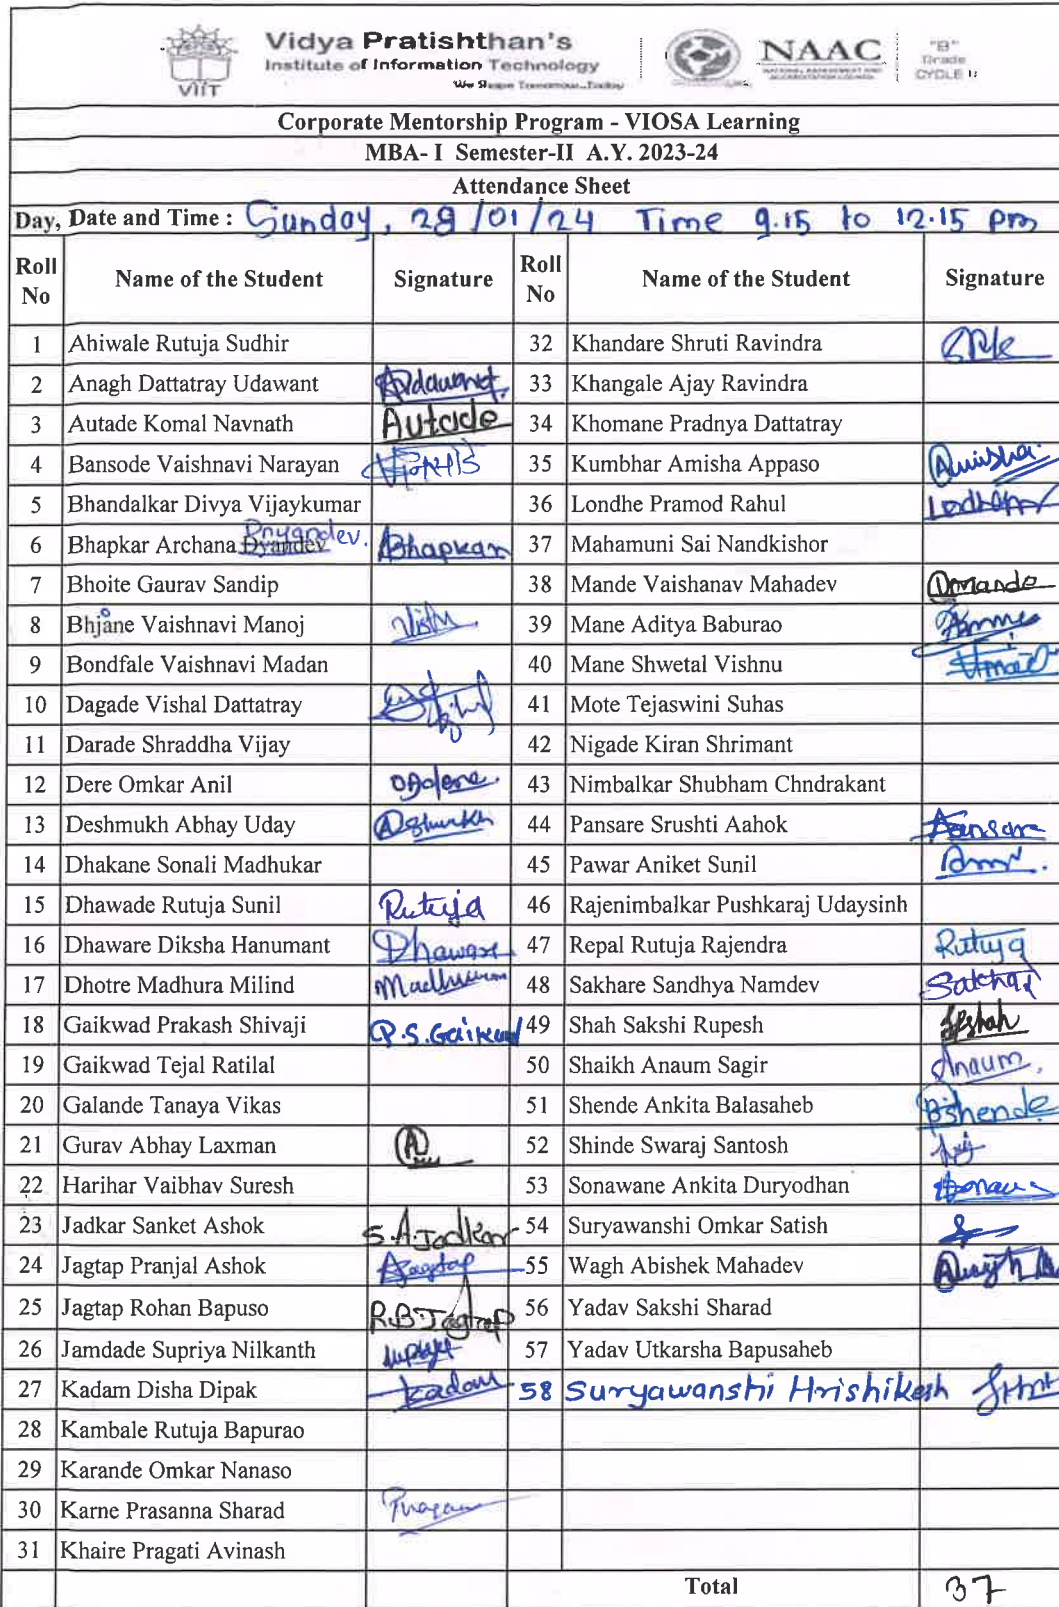 Vidya Pratishthan's
Institute of Information Technology
We Shape Tomorrow...Today
VIIT
NAAC
NATIONAL ASSESSMENT AND
ACCREDITATION COUNCIL
"B"
Grade
CYCLE
Corporate Mentorship Program - VIOSA Learning
MBA- I Semester-II A.Y. 2023-24
Attendance Sheet
Day, Date and Time : Sunday, 28/01/24 Time 9.15 to 12.15 pm
Roll No Name of the Student Signature Roll No Name of the Student Signature
1 Ahiwale Rutuja Sudhir 32 Khandare Shruti Ravindra
2 Anagh Dattatray Udawant Udawant 33 Khangale Ajay Ravindra
3 Autade Komal Navnath Autade 34 Khomane Pradnya Dattatray
4 Bansode Vaishnavi Narayan 35 Kumbhar Amisha Appaso Amisha
5 Bhandalkar Divya Vijaykumar 36 Londhe Pramod Rahul
6 Bhapkar Archana Dyandev Dnyandev. Bhapkar 37 Mahamuni Sai Nandkishor
7 Bhoite Gaurav Sandip 38 Mande Vaishanav Mahadev Mande
8 Bhjane Vaishnavi Manoj 39 Mane Aditya Baburao
9 Bondfale Vaishnavi Madan 40 Mane Shwetal Vishnu
10 Dagade Vishal Dattatray 41 Mote Tejaswini Suhas
11 Darade Shraddha Vijay 42 Nigade Kiran Shrimant
12 Dere Omkar Anil 43 Nimbalkar Shubham Chndrakant
13 Deshmukh Abhay Uday 44 Pansare Srushti Aahok Pansare
14 Dhakane Sonali Madhukar 45 Pawar Aniket Sunil
15 Dhawade Rutuja Sunil Rutuja 46 Rajenimbalkar Pushkaraj Udaysinh
16 Dhaware Diksha Hanumant Dhaware 47 Repal Rutuja Rajendra Rutuja
17 Dhotre Madhura Milind Madhura 48 Sakhare Sandhya Namdev
18 Gaikwad Prakash Shivaji P.S.Gaikwad 49 Shah Sakshi Rupesh
19 Gaikwad Tejal Ratilal 50 Shaikh Anaum Sagir Anaum
20 Galande Tanaya Vikas 51 Shende Ankita Balasaheb Shende
21 Gurav Abhay Laxman 52 Shinde Swaraj Santosh
22 Harihar Vaibhav Suresh 53 Sonawane Ankita Duryodhan
23 Jadkar Sanket Ashok S.A.Jadkar 54 Suryawanshi Omkar Satish
24 Jagtap Pranjal Ashok Jagtap 55 Wagh Abishek Mahadev
25 Jagtap Rohan Bapuso R.B.Jagtap 56 Yadav Sakshi Sharad
26 Jamdade Supriya Nilkanth 57 Yadav Utkarsha Bapusaheb
27 Kadam Disha Dipak Kadam 58 Suryawanshi Hrishikesh
28 Kambale Rutuja Bapurao
29 Karande Omkar Nanaso
30 Karne Prasanna Sharad
31 Khaire Pragati Avinash
Total 37